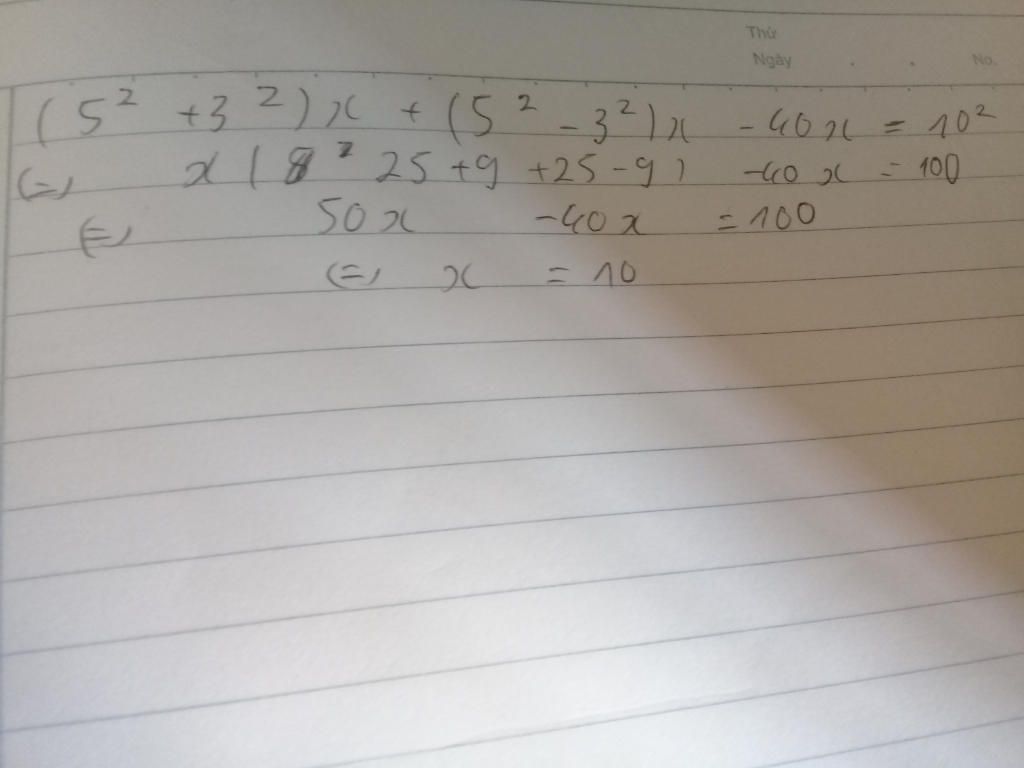 Thứ
Ngày . . No.
(5² + 3²)x + (5² - 3²)x - 40x = 10²
(=) x( 25 + 9 + 25 - 9) - 40x = 100
(=) 50x - 40x = 100
(=) x = 10